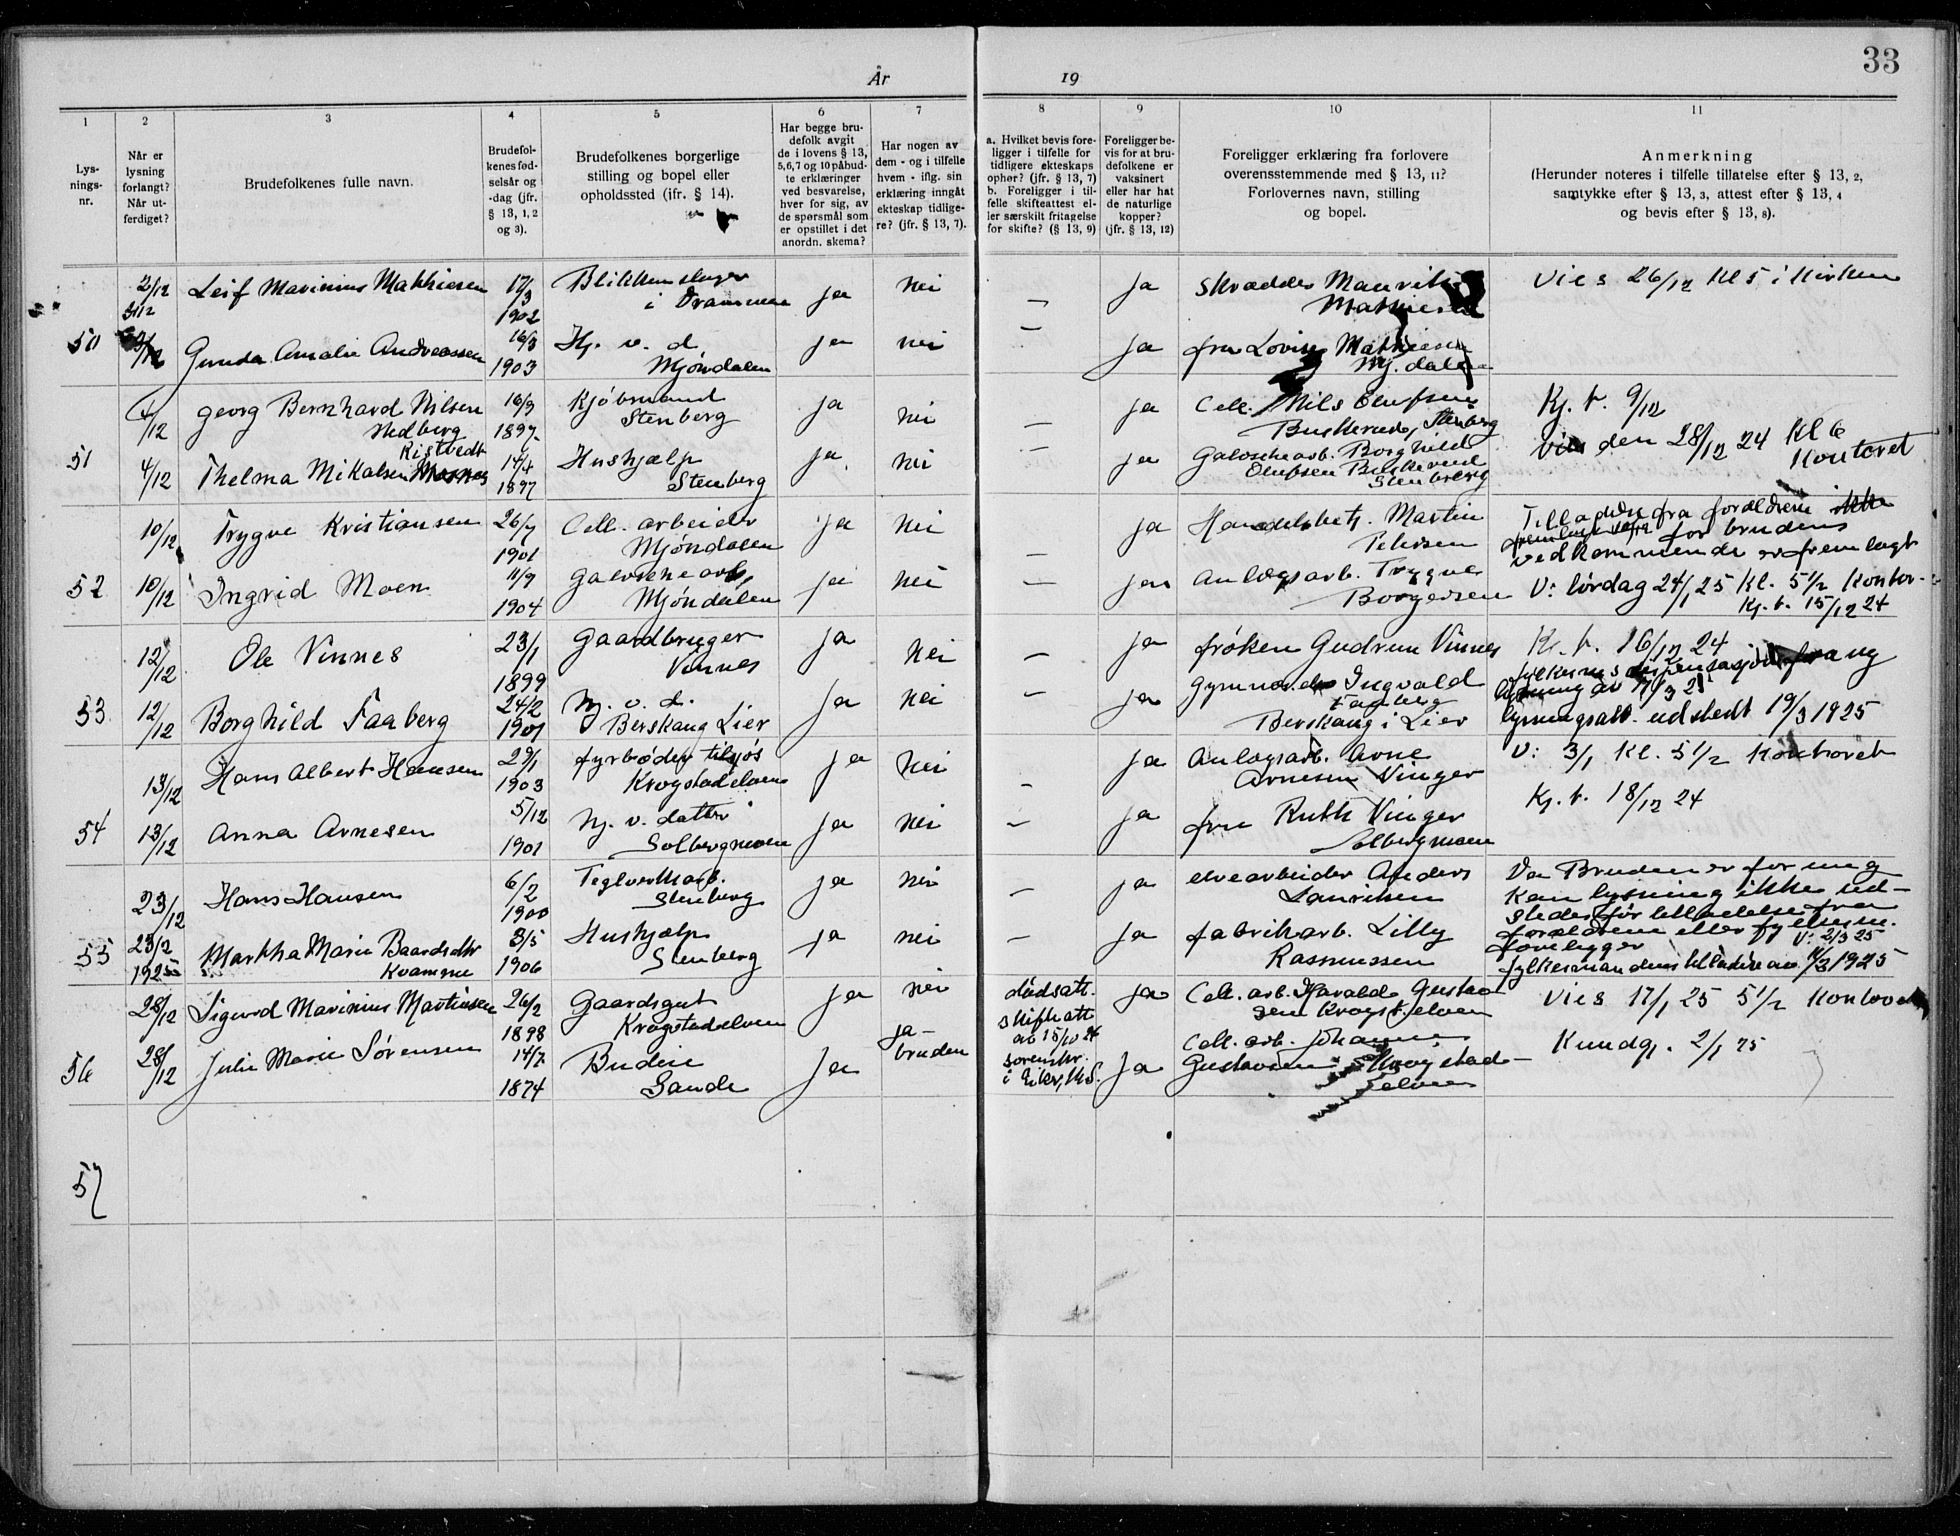 33
År 19
1 2 3 4 5 6 7 8 9 10 11
Lys-
nings-
nr.
Når er
lysning
forlangt?
Når ut-
ferdiget?
Brudefolkenes fulle navn.
Brudefol-
kenes fød-
selsår og
-dag (jfr.
§ 13, 1, 2
og 3).
Brudefolkenes borgerlige
stilling og bopel eller
opholdssted (jfr. § 14).
Har begge bru-
defolk avgit
de i lovens § 13,
5,6,7 og 10 påbud-
te erklæringer
ved besvarelse,
hver for sig, av
de spørsmål som
er opstillet i det
anordn. skema?
Har nogen av
dem - og i tilfelle
hvem - iflg. sin
erklæring inngått
ekteskap tidlige-
re? (jfr. § 13, 7).
a. Hvilket bevis fore-
ligger i tilfelle for
tidligere ekteskaps
ophør? (jfr. § 13, 7)
b. Foreligger i til-
felle skifteattest el-
ler særskilt fritagelse
for skifte? (§ 13, 9)
Foreligger be-
vis for at bru-
defolkene er
vaksinert
eller har hat
de naturlige
kopper?
(jfr. § 13, 12)
Foreligger erklæring fra forlovere
overensstemmende med § 13, 11?
Forlovernes navn, stilling
og bopel.
Anmerkning
(Herunder noteres i tilfelle tillatelse efter § 13, 2,
samtykke efter § 13, 3, attest efter § 13, 4
og bevis efter § 13, 8).
2/12 Leif Marinius Mathiesen 17/3 1902 Blikkenslager i Drammen ja nei — ja Skrædder Mauritz Mathiesen Vies 26/12 Kl 5 i Kirken
50 Gunda Amalie Andreassen 16/3 1903 Hj. v. d. Mjöndalen ja nei — ja fru Lovise Mathiesen Mj. dalen
4/12 Georg Bernhard Nilsen Nedberg 16/9 1897 Kjöbmand Stenberg ja nei — ja Cell. Nils Olufsen Buskerud, Stenberg Kj. t. 9/12
51 4/12 Thelma Mikalsen Ristvedt 14/4 1897 Hushjælp Stenberg ja nei — ja Galoschearb. Borghild Olufsen Buskerud Stenberg den 28/12 24 Kl 6 Kontoret
10/12 Trygve Kristiansen 26/7 1901 Cell. arbeider Mjöndalen ja nei — ja Handelsbetj. Martin Petersen Tilladelse fra forældrene for brudens vedkommende er fremlagt
52 10/12 Ingrid Moen 11/9 1904 Galoschearb. Mjöndalen ja nei — ja Anlægsarb. Trygve Borgersen V: lördag 24/1 25 Kl. 5 1/2 Kontor- Kj. t. 15/12 24
12/12 Ole Vinnes 23/1 1899 Gaardbruger Vinnes ja nei — ja fröken Gudrun Vinnes Kj. t. 16/12 24
53 12/12 Borghild Faaberg 24/2 1901 Hj. v. d. Berskaug Lier ja nei — ja Ingvald Faaberg Berskaug i Lier lysningsatt. udstedt 19/3 1925
13/12 Hans Albert Hansen 29/1 1903 fyrböder tilsjös Krogstadelven ja nei — ja Anlægsarb. Arne Arnesen Vinger V: 3/1 Kl. 5 1/2 Kontoret
54 13/12 Anna Arnesen 5/12 1901 Hj. v. datter Solbergmoen ja nei — ja fru Ruth Vinger Solbergmoen Kj. t. 18/12 24
23/12 Hans Hansen 6/2 1900 Teglverksarb. Stenberg ja nei — ja elvearbeider Anders Lauritsen Da Bruden er for ung kan lysning ikke ud- stedes før tilladelse fra forældrene eller fylkesm. foreligger V: 2/3 25
55 23/2 1925 Martha Marie Baardsdtr Kvamme 3/5 1906 Hushjælp Stenberg ja nei — ja fabrikarb. Lilly Rasmussen fylkesmandens tilladelse av 3 1925
28/12 Sigurd Marinius Martinsen 26/2 1898 Gaardsgut Krogstadelven ja nei dödsatt. skifteatt. ab 15/10 24 sorenskr. i Eiker, M.S. ja Cell. arb. Harald Gustavsen Krogst. elven Vies 17/1 25 5 1/2 Kontoret
56 28/12 Julie Marie Sørensen 14/7 1874 Budeie Sande ja ja- bruden ja Cell. arb. Johannes Gustavsen Krogstad- elven Kundgj. 2/1 25
57